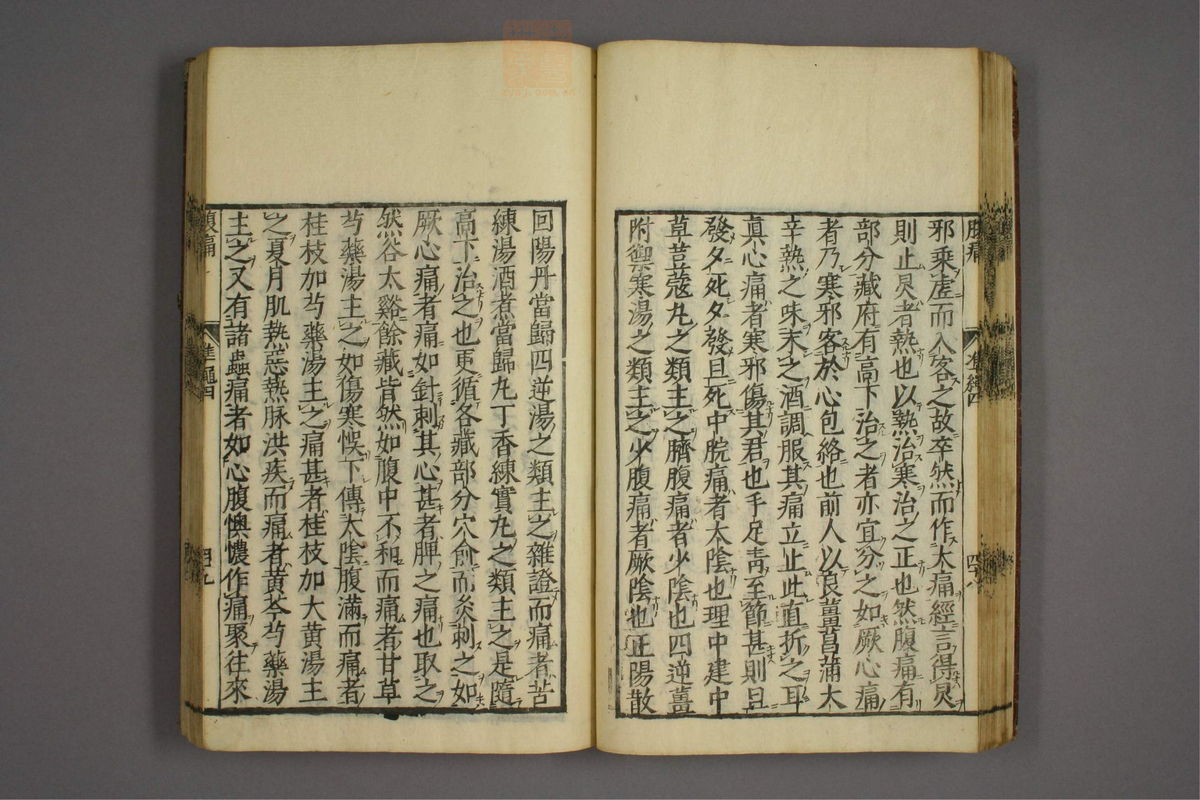 腹痛
準繩四
邪乘虛而入客之故卒然而作大痛經言得炅
則止炅者熱也以熱治寒治之正也然腹痛有
部分藏府有高下治之者亦宜分之如厥心痛
者乃寒邪客於心包絡也前人以良薑菖蒲大
辛熱之味末之酒調服其痛立止此直折之耳
真心痛者寒邪傷其君也手足靑至節甚則旦
發夕死夕發旦死中脘痛者太陰也理中建中
草荳蔻丸之類主之臍腹痛者少陰也四逆薑
附禦寒湯之類主之少腹痛者厥陰也正陽散
回陽丹當歸四逆湯之類主之雜證而痛者苦
練湯酒煮當歸丸丁香練實丸之類主之是隨
高下治之也更循各藏部分穴俞而灸刺之如
厥心痛者痛如針刺其心甚者脾之痛也取之
然谷太谿餘藏皆然如腹中不和而痛者甘草
芍藥湯主之如傷寒悞下傳太陰腹滿而痛者
桂枝加芍藥湯主之痛甚者桂枝加大黄湯主
之夏月肌熱惡熱脉洪疾而痛者黄芩芍藥湯
主之又有諸蟲痛者如心腹懊憹作痛聚往來
腹痛
準繩四
四九